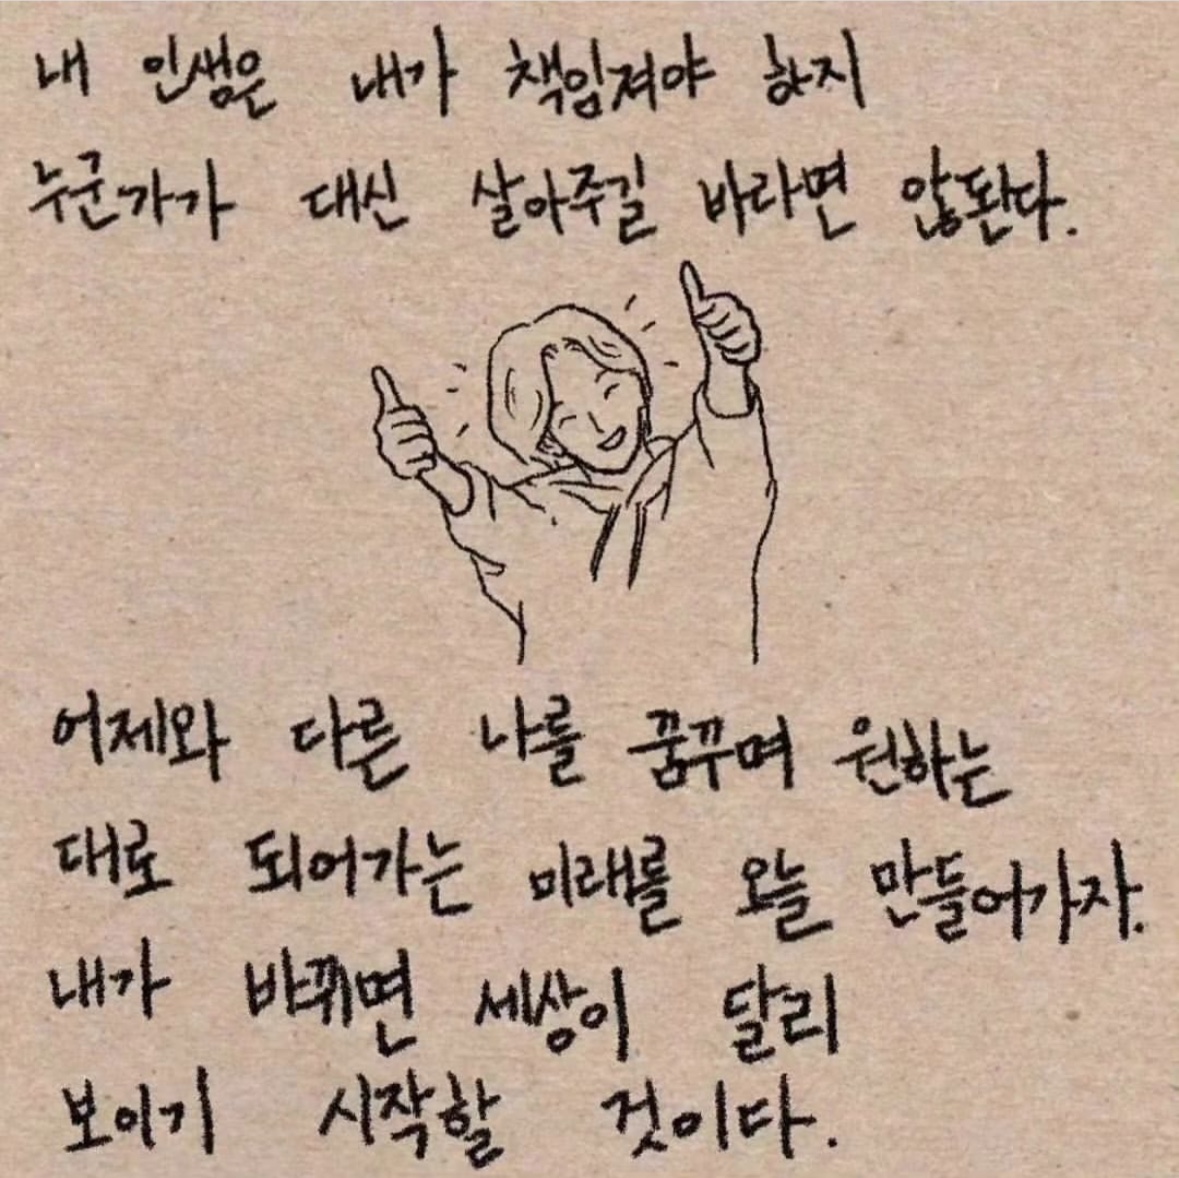 내 인생은 내가 책임져야 하지
누군가가 대신 살아주길 바라면 않됀다.
어제와 다른 나를 꿈꾸며 원하는
대로 되어가는 미래를 오늘 만들어가자.
내가 바뀌면 세상이 달리
보이기 시작할 것이다.